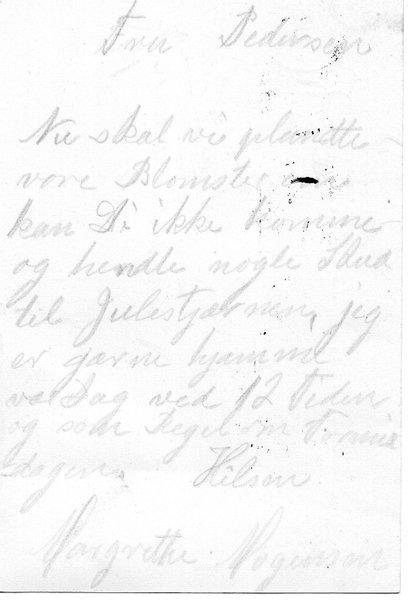 Fru Pedersen
Nu skal vi plandte
vore Blomster
kan De ikke komme
og hendte nogle Skud
til Julestjærnen, jeg
er gærne hjemme
Dag ved 12 Tiden
og som Regel om Formid
dagen. Hilsen
Margrethe Mogensen